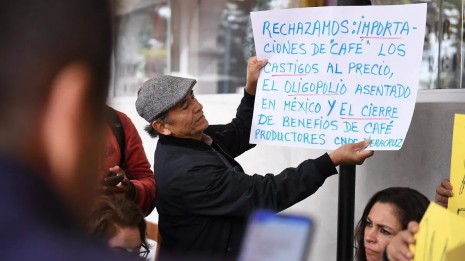 RECHAZAMOS: IMPORTA-
CIONES DE "CAFÉ" LOS
CASTIGOS AL PRECIO,
EL OLIGOPOLIO ASENTADO
EN MÉXICO Y EL CIERRE
DE BENEFICIOS DE CAFÉ
PRODUCTORES CNOC VERACRUZ